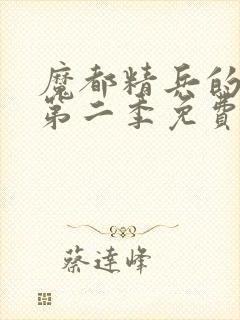 魔都精兵的
第二季免費
蔡達峰